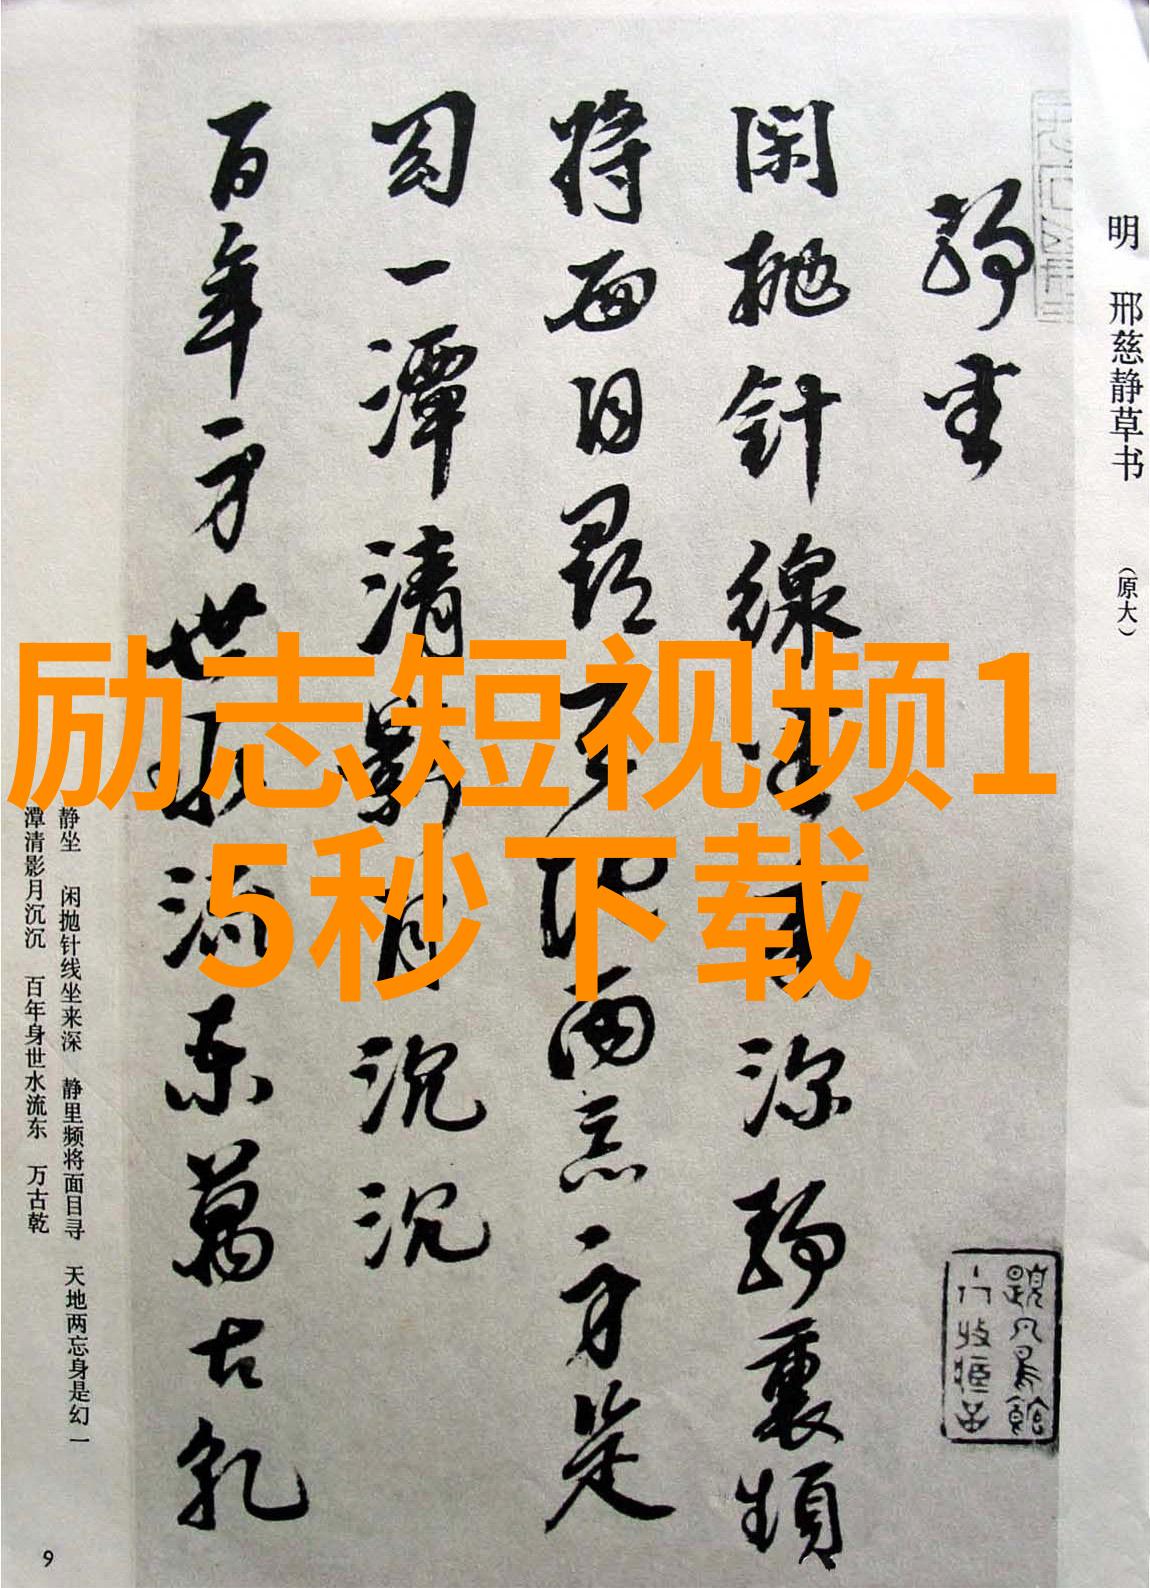 明 邢慈静草书 （原大）
静坐
闲抛针線坐来深静裏頻
将面目尋天地两忘身是
幻一潭清影月沉沉
百年身世水流东萬古乾
静坐 闲抛针线坐来深 静里频将面目寻 天地两忘身是幻 一
潭清影月沉沉 百年身世水流东 万古乾
9
励志短视频1
5秒下载